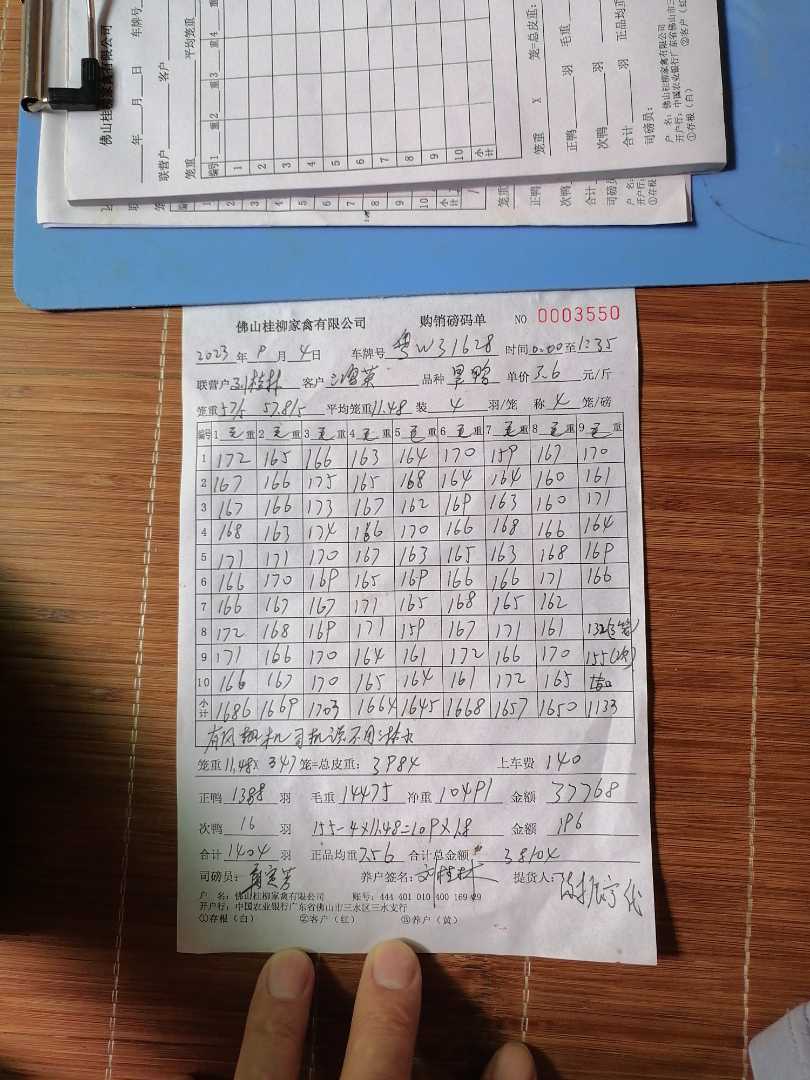 佛山桂柳家禽有限公司
年 月 日 车牌号
联营户 客户
笼重 平均笼重
编号 1 重 2 重 3 重 4 重
1
2
3
4
5
6
7
8
9
10
小计
笼重 X 笼=总皮重:
正鸭 羽 毛重
次鸭 羽
合计 羽 正品均重
司磅员:
户 名: 佛山桂柳家禽有限公司
开户行: 中国农业银行广东省佛山市三
①存根(白) ②客户(红
佛山桂柳家禽有限公司 购销磅码单 NO 0003550
2023 年 9 月 4 日 车牌号 粤W31628 时间 0:00 至 1:35
联营户 刘桂林 客户 品种 单价 7.6 元/斤
笼重 57.5 57.8/5 平均笼重 11.48 装 4 羽/笼 称 4 笼/磅
编号 1 毛 重 2 毛 重 3 毛 重 4 毛 重 5 毛 重 6 毛 重 7 毛 重 8 毛 重 9 毛 重
1 172 165 166 163 164 170 159 167 170
2 167 166 175 165 168 164 164 160 161
3 167 166 173 167 162 169 163 160 171
4 168 163 174 166 170 166 168 166 164
5 171 171 170 167 163 165 163 168 169
6 166 170 169 165 169 166 166 171 166
7 166 167 167 171 165 168 165 162
8 172 168 169 171 159 167 171 161 132(3笼)
9 171 166 170 164 161 172 166 170 155(次)
10 166 167 170 165 164 161 172 165
小计 1686 1669 1703 1664 1645 1668 1657 1650 1133
笼重 11.48 X 347 笼=总皮重: 3984 上车费 140
正鸭 1388 羽 毛重 14475 净重 10491 金额 37768
次鸭 16 羽 155-4×11.48=109×1.8 金额 196
合计 1404 羽 正品均重 7.56 合计总金额 38104
司磅员: 养户签名: 刘桂林 提货人:
户 名: 佛山桂柳家禽有限公司 账号: 444 401 010 400 169 29
开户行: 中国农业银行广东省佛山市三水区三水支行
①存根(白) ②客户(红) ③养户(黄)